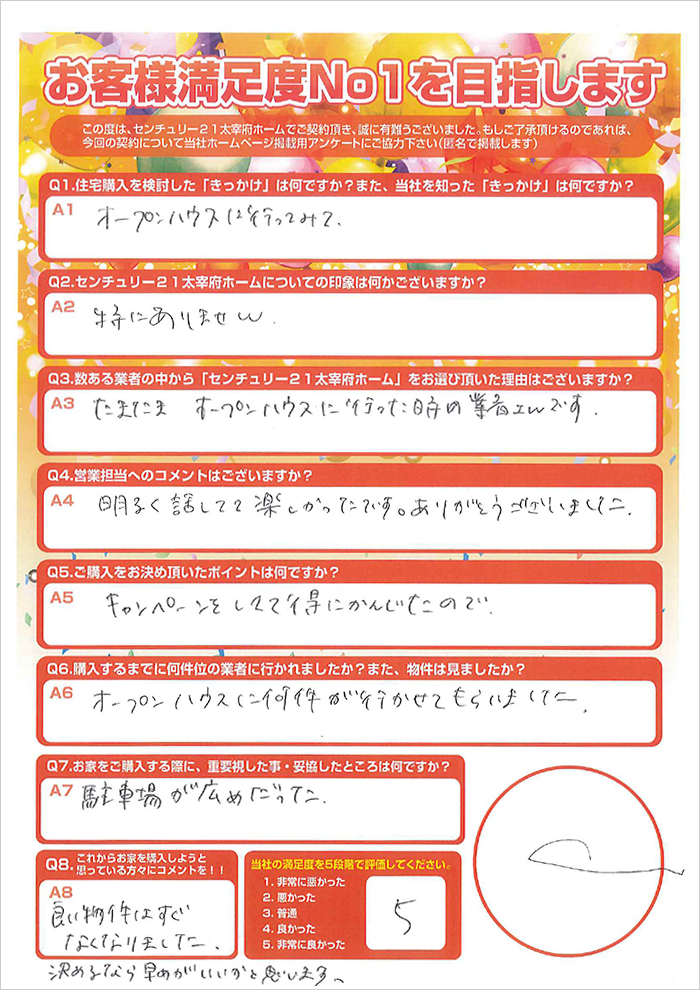 お客様満足度No1を目指します
この度は、センチュリー21太宰府ホームでご契約頂き、誠に有難うございました。もしご了承頂けるのであれば、
今回の契約について当社ホームページ掲載用アンケートにご協力下さい(匿名で掲載します)
Q1.住宅購入を検討した「きっかけ」は何ですか?また、当社を知った「きっかけ」は何ですか?
A1 オープンハウスに行ってみて、
Q2.センチュリー21太宰府ホームについての印象は何かございますか?
A2 特にありません.
Q3.数ある業者の中から「センチュリー21太宰府ホーム」をお選び頂いた理由はございますか?
A3 たまたま オープンハウスに行った時の業者さんです.
Q4.営業担当へのコメントはございますか?
A4 明るく話してて楽しかったです。ありがとうございました.
Q5.ご購入をお決め頂いたポイントは何ですか?
A5 キャンペーンをしてて得にかんじたので.
Q6.購入するまでに何件位の業者に行かれましたか?また、物件は見ましたか?
A6 オープンハウスに何件か行かせてもらいました.
Q7.お家をご購入する際に、重要視した事・妥協したところは何ですか?
A7 駐車場が広めだった.
Q8.これからお家を購入しようと
思っている方々にコメントを!!
A8
良い物件はすぐ
なくなりました.
決めるなら早めがいいかと思います、
当社の満足度を5段階で評価してください。
1. 非常に悪かった
2. 悪かった
3. 普通
4. 良かった
5. 非常に良かった
5